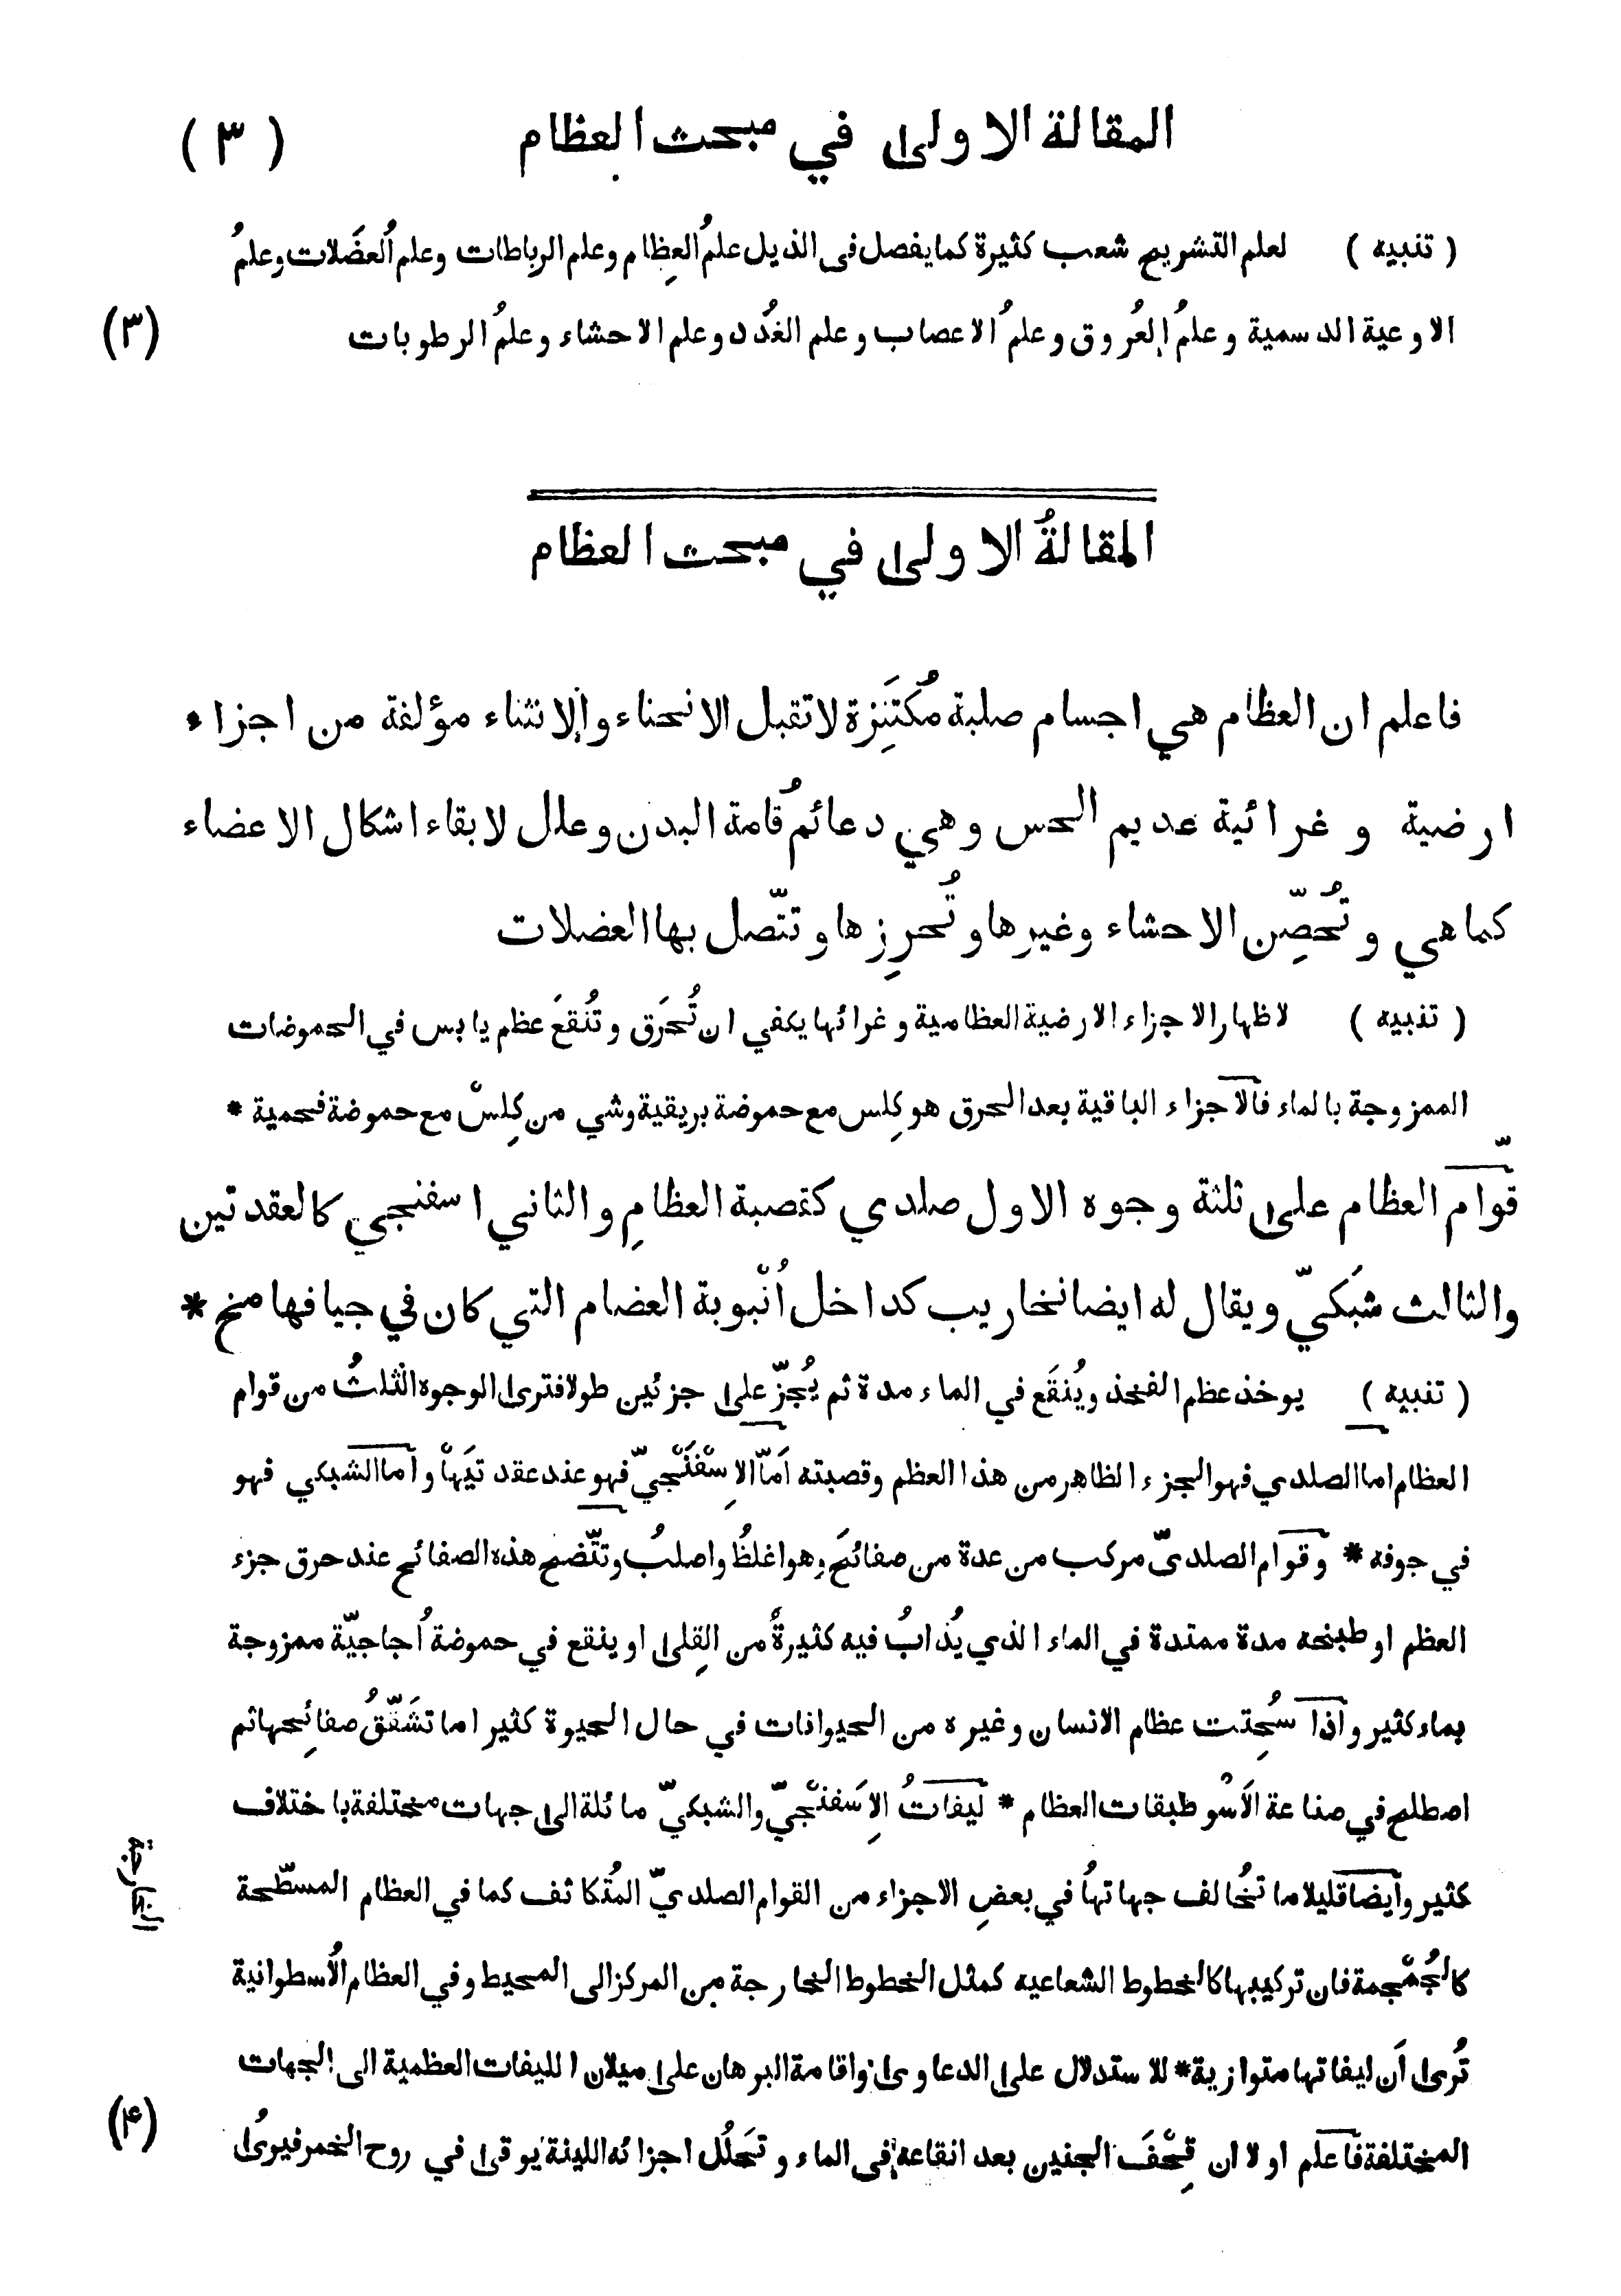 المقالة الاولى في مبحث العظام ( ٣ )
( تنبيه ) لعلم التشريح شعب كثيرة كما يفصل فى الذيل علمُ العِظام وعلم الرباطات وعلم العضَلات وعلمُ
الاوعية الدسمية وعلمُ العُروق وعلمُ الاعصاب وعلم الغُدد وعلم الاحشاء وعلمُ الرطوبات
(٣)
المقالةُ الاولى في مبحث العظام
فاعلم ان العظام هي اجسام صلبة مُكتَنِزة لا تقبل الانحناء والانثناء مؤلفة من اجزاء
ارضية وغرائية عديم الحس وهي دعائمُ قامة البدن وعلل لابقاء اشكال الاعضاء
كما هي وتُحصِّن الاحشاء وغيرها وتُحرِزها وتتّصل بها العضلات
( تنبيه ) لاظهار الاجزاء الارضية العظامية وغرائها يكفي ان تُحرَق وتُنقعَ عظم يابس في الحموضات
الممزوجة بالماء فالاجزاء الباقية بعد الحرق هو كِلس مع حموضة بريقية وشي من كِلسْ مع حموضة فحمية *
قوّام العظام على ثلثة وجوه الاول صلدي كقصبة العظام والثاني اسفنجي كالعقدتين
والثالث شبَكيّ ويقال له ايضا نخاريب كداخل أنْبوبة العضام التي كان في جيافها منخ *
( تنبيه ) يوخذ عظم الفخذ ويُنقَع في الماء مدة ثم يُجزّ على جزئين طولا فترى الوجوه الثلثُ من قوام
العظام اما الصلدي فهو الجزء الظاهر من هذا العظم وقصبته أمّا الاِسْفَنْجيّ فهو عند عقد تيَها وأما الشبكي فهو
في جوفه * وقوام الصلديّ مركب من عدة من صفائحَ وهو اغلظُ واصلبُ وتتّضح هذه الصفائح عند حرق جزء
العظم او طبخه مدة ممتدة في الماء الذي يُذابُ فيه كثيرةٌ من القِلى او ينقع في حموضة اُجاجيّة ممزوجة
بماء كثير واذا سُحِتت عظام الانسان وغيره من الحيوانات في حال الحيوة كثيرا ما تشَقّقُ صفائِحها ثم
اصطلح في صناعة الاَسْو طبقات العظام * ليفاتُ الاِسَفنْجيّ والشبكيّ مائلة الى جهات مختلفة باختلاف
كثير وأيضا قليلا ما تخُالف جهاتهُا في بعضِ الاجزاء من القوام الصلديّ المتُكاثف كما في العظام المسطّحة
كالجُمْجمة فان تركيبها كالخطوط الشعاعيه كمثل الخطوط الخارجة من المركز الى المحيط وفي العظام الاُسطوانية
الخارجة
تُرى أن ليفاتها متوازية * للاستدلال على الدعاوى واقامة البرهان على ميلان الليفات العظمية الى الجهات
المختلفة فاعلم اولا ان قِحْفَ الجنين بعد انقاعه فى الماء وتحَلُل اجزائه اللينة يوقى في روح الخمر فيرىُ
(۴)